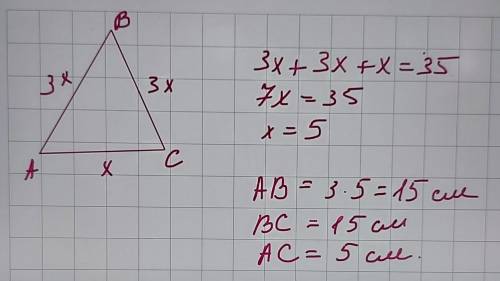 B
3x 3x
A x C
3x + 3x + x = 35
7x = 35
x = 5
AB = 3·5 = 15 см
BC = 15 см
AC = 5 см.